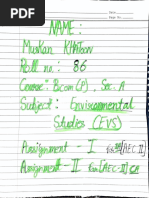 NAME :
Muskan KHATOON
Roll no : 86
Course : B.com (P) , Sec. A
Subject : Environmental
Studies (EVS)
Assignment - I for [AEC-II]
Assignment - II for [AEC-II] CA